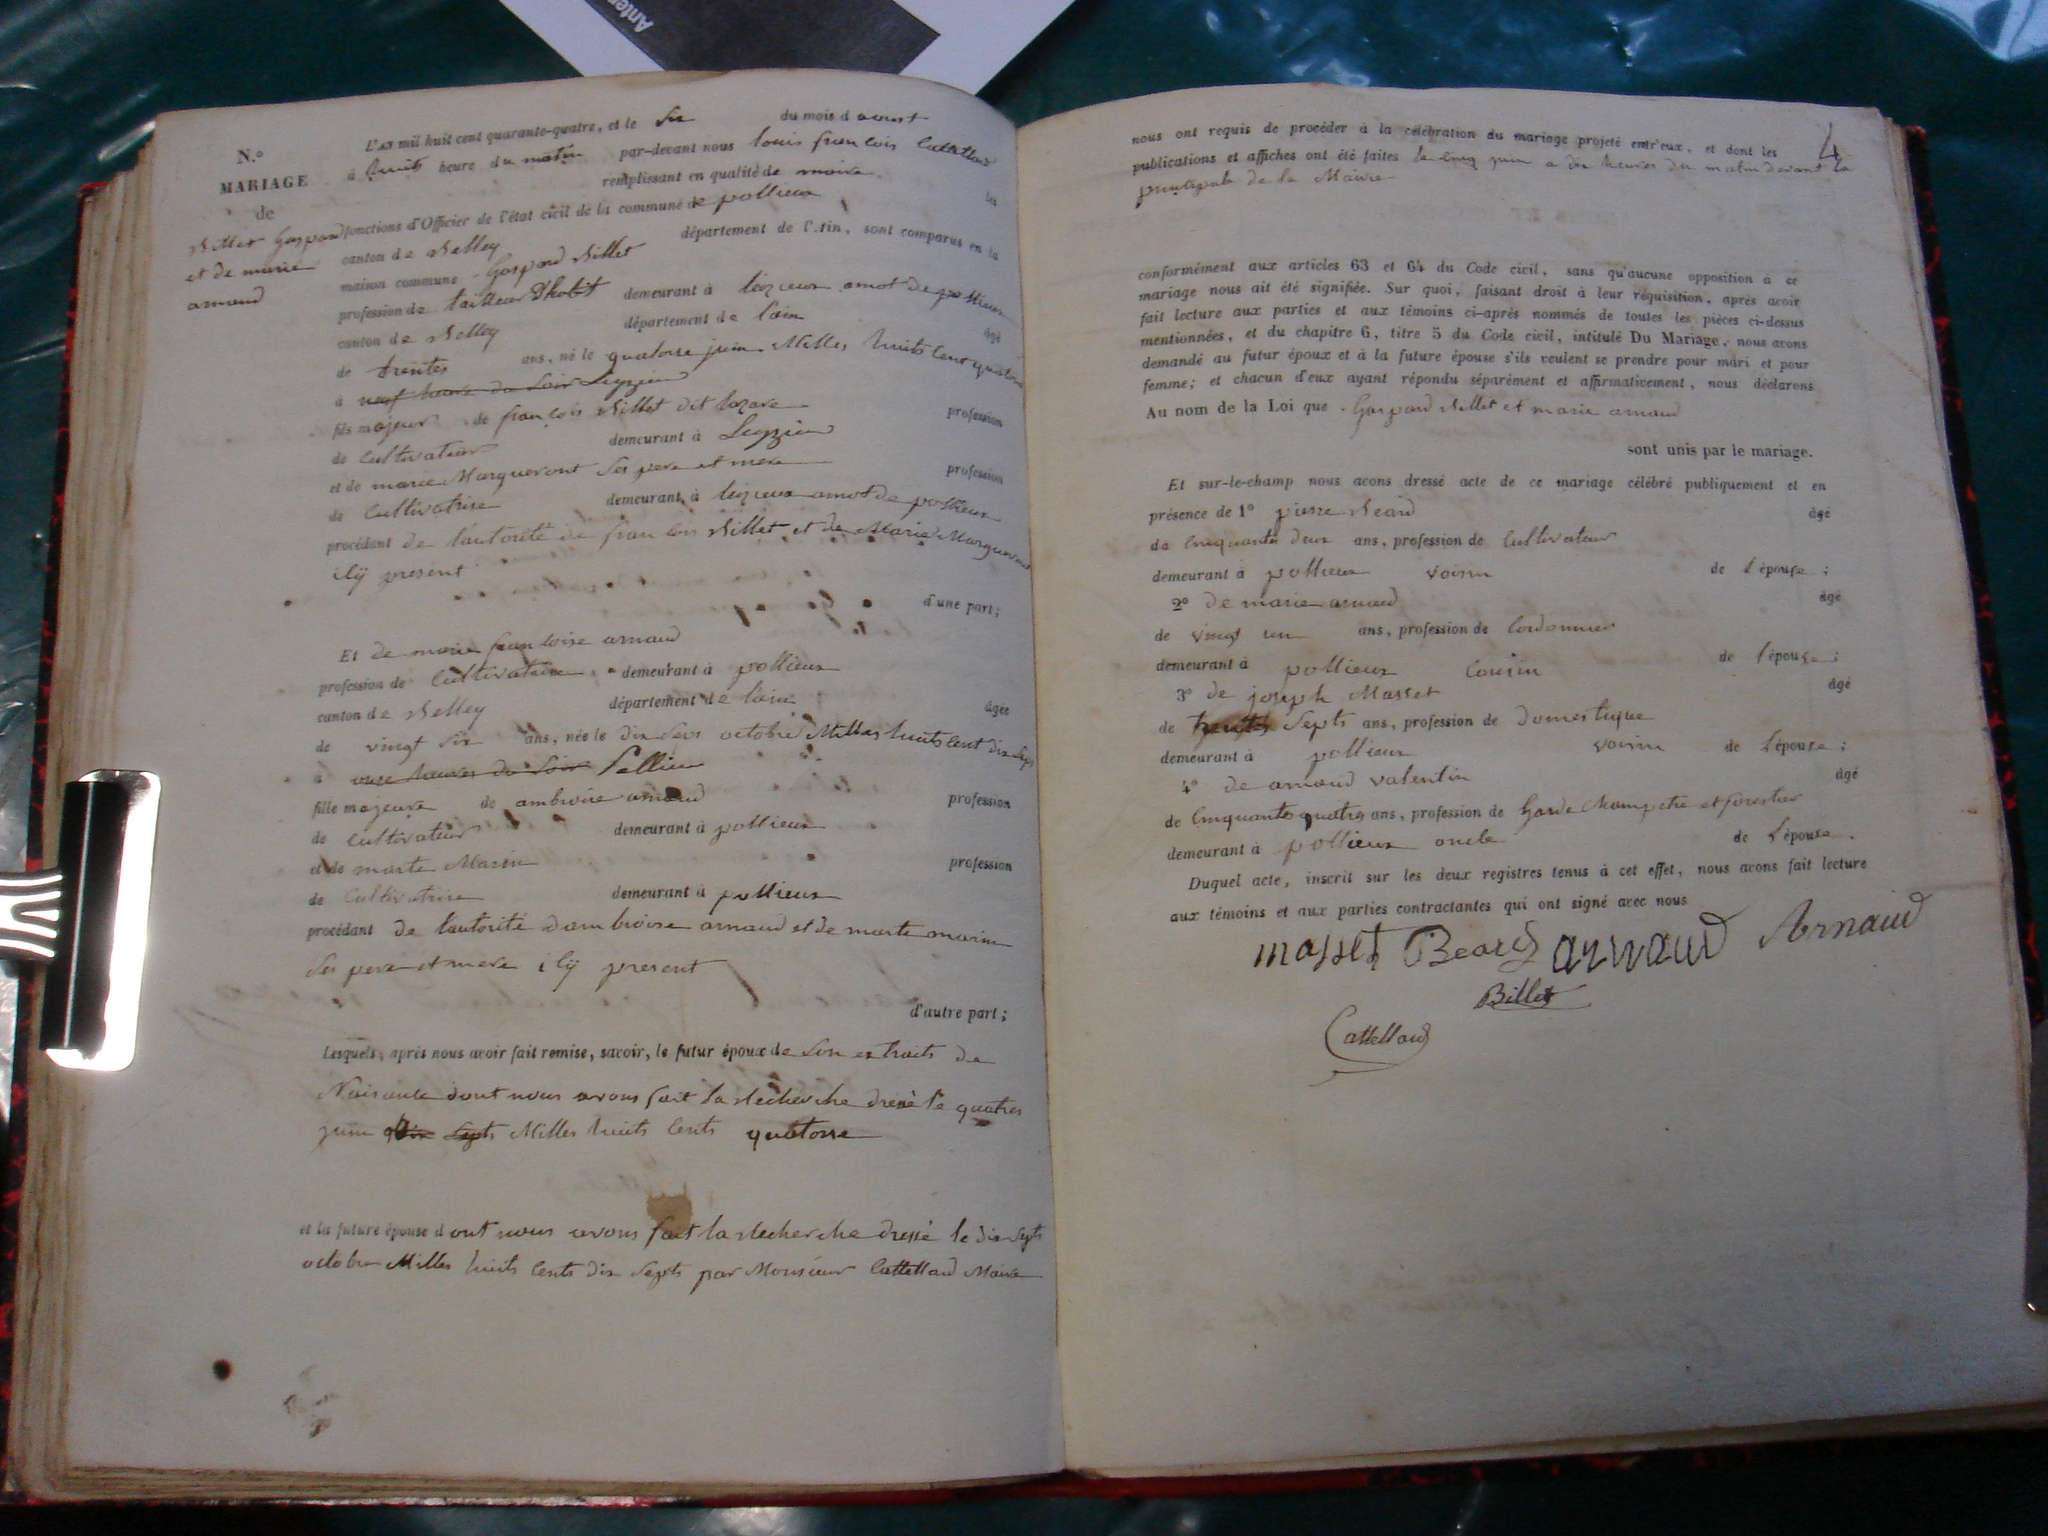 Anten
N.º
MARIAGE
de
Billet Gaspard
et de marie
arnaud
L'AN mil huit cent quarante-quatre, et le Six du mois d aoust
à huits heure du matin par-devant nous louis françois Cattelland
remplissant en qualité de maire les
fonctions d'Officier de l'état civil de la commune de pollieux
canton de Belley département de l'Ain, sont comparus en la
maison commune Gaspard Billet
profession de tailleur D'habit demeurant à leizieux amot de pollieux
canton de Belley département de l'ain âgé
de trentes ans, né le quatorse juin Milles huits Cent quatorse
à neuf heure du Soir Leyzieu
fils majeur de françois Billet dit lazare profession
de Cultivateur demeurant à Leyzieu
et de marie Marqueront Ses pere et mere profession
de Cultivatrise demeurant à leizieux amot de pollieux
procédant de l'autorité de françois Billet et de Marie Marqueront
ilÿ present
d'une part;
Et de marie françoise arnaud
profession de Cultivatrise demeurant à pollieux
canton de Belley département de l'ain âgée
de vingt Six ans, née le dix Sept octobre Milles huits Cent dix Sept
à onze heures du Soir Pollieu
fille majeure de ambroise arnaud profession
de Cultivateur demeurant à pollieux
et de marte Marin profession
de Cultivatrise demeurant à pollieux
procédant de l'autorité d'ambroise arnaud et de marte marin
Ses pere et mere ilÿ present
d'autre part;
Lesquels, après nous avoir fait remise, savoir, le futur époux de Son extraits de
Naisance dont nous avons fait la Recherche dressé le quatres
juin dix Septs Milles huits Cents quatorse
et la future épouse dont nous avons fait la Recherche dressé le dix Septs
octobre Milles huits Cents dix Septs par Monsieur Cattelland Maire
4
nous ont requis de procéder à la célébration du mariage projeté entr'eux, et dont les
publications et affiches ont été faites le cinq juin a dix heures du matin devant la
principale de la Mairie
conformément aux articles 63 et 64 du Code civil, sans qu'aucune opposition à ce
mariage nous ait été signifiée. Sur quoi, faisant droit à leur réquisition, après avoir
fait lecture aux parties et aux témoins ci-après nommés de toutes les pièces ci-dessus
mentionnées, et du chapitre 6, titre 5 du Code civil, intitulé Du Mariage, nous avons
demandé au futur époux et à la future épouse s'ils veulent se prendre pour mari et pour
femme; et chacun d'eux ayant répondu séparément et affirmativement, nous déclarons
Au nom de la Loi que Gaspard Billet et marie arnaud
sont unis par le mariage.
Et sur-le-champ nous avons dressé acte de ce mariage célébré publiquement et en
présence de 1º pierre Beard âgé
de Cinquante deux ans, profession de Cultivateur
demeurant à pollieux voisin de l'épouse;
2º de marie arnaud âgé
de vingt un ans, profession de Cordonnier
demeurant à pollieux Cousin de l'épouse;
3º de joseph Masset âgé
de trentes Septs ans, profession de Domestique
demeurant à pollieux voisin de l'épouse;
4º de arnaud valentin âgé
de Cinquantes quatres ans, profession de Garde Champetre et forestier
demeurant à pollieux oncle de l'épouse.
Duquel acte, inscrit sur les deux registres tenus à cet effet, nous avons fait lecture
aux témoins et aux parties contractantes qui ont signé avec nous
masset Beard arnaud Arnaud
Billet
Cattelland